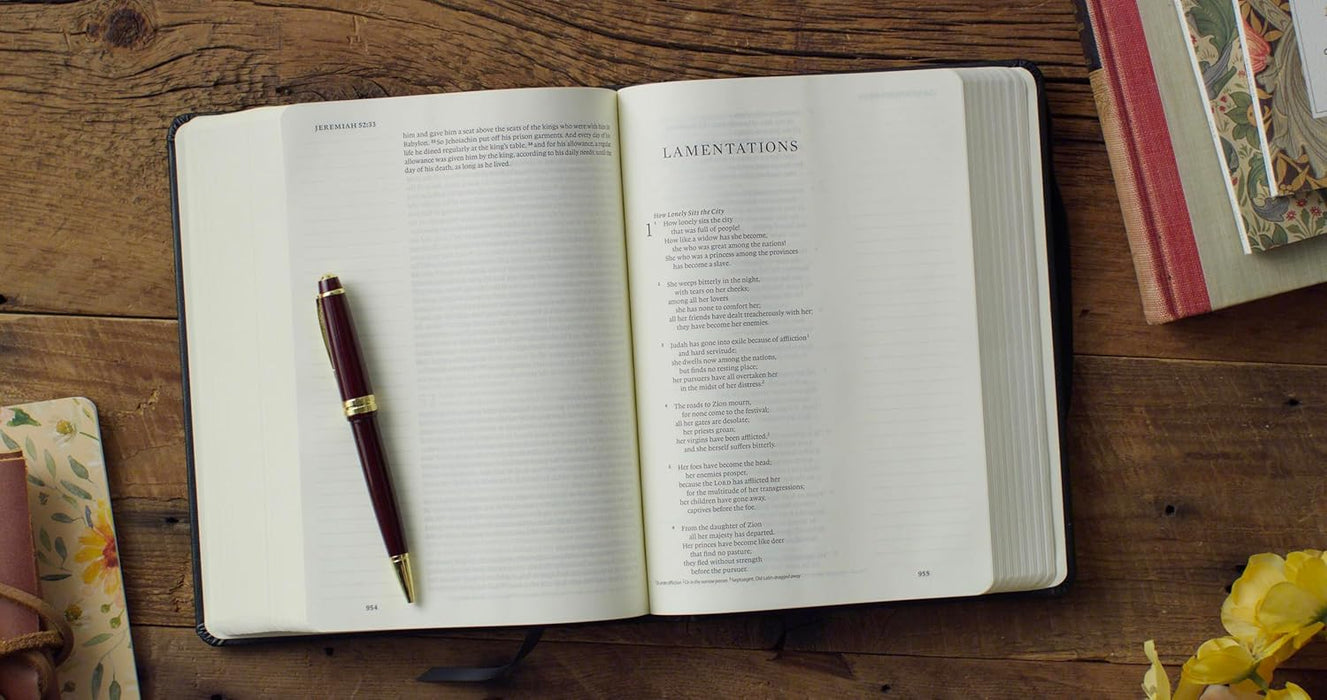 JEREMIAH 52:33
him and gave him a seat above the seats of the kings who were with him in
Babylon. 33 So Jehoiachin put off his prison garments. And every day of his
life he dined regularly at the king's table, 34 and for his allowance, a regular
allowance was given him by the king, according to his daily needs, until the
day of his death, as long as he lived.
954
LAMENTATIONS
How Lonely Sits the City
1 1 How lonely sits the city
that was full of people!
How like a widow has she become,
she who was great among the nations!
She who was a princess among the provinces
has become a slave.
2 She weeps bitterly in the night,
with tears on her cheeks;
among all her lovers
she has none to comfort her;
all her friends have dealt treacherously with her;
they have become her enemies.
3 Judah has gone into exile because of affliction1
and hard servitude;
she dwells now among the nations,
but finds no resting place;
her pursuers have all overtaken her
in the midst of her distress.2
4 The roads to Zion mourn,
for none come to the festival;
all her gates are desolate;
her priests groan;
her virgins have been afflicted,3
and she herself suffers bitterly.
5 Her foes have become the head;
her enemies prosper,
because the LORD has afflicted her
for the multitude of her transgressions;
her children have gone away,
captives before the foe.
6 From the daughter of Zion
all her majesty has departed.
Her princes have become like deer
that find no pasture;
they fled without strength
before the pursuer.
affliction 2 Or in the narrow passes 3 Septuagint, Old Latin dragged away
955